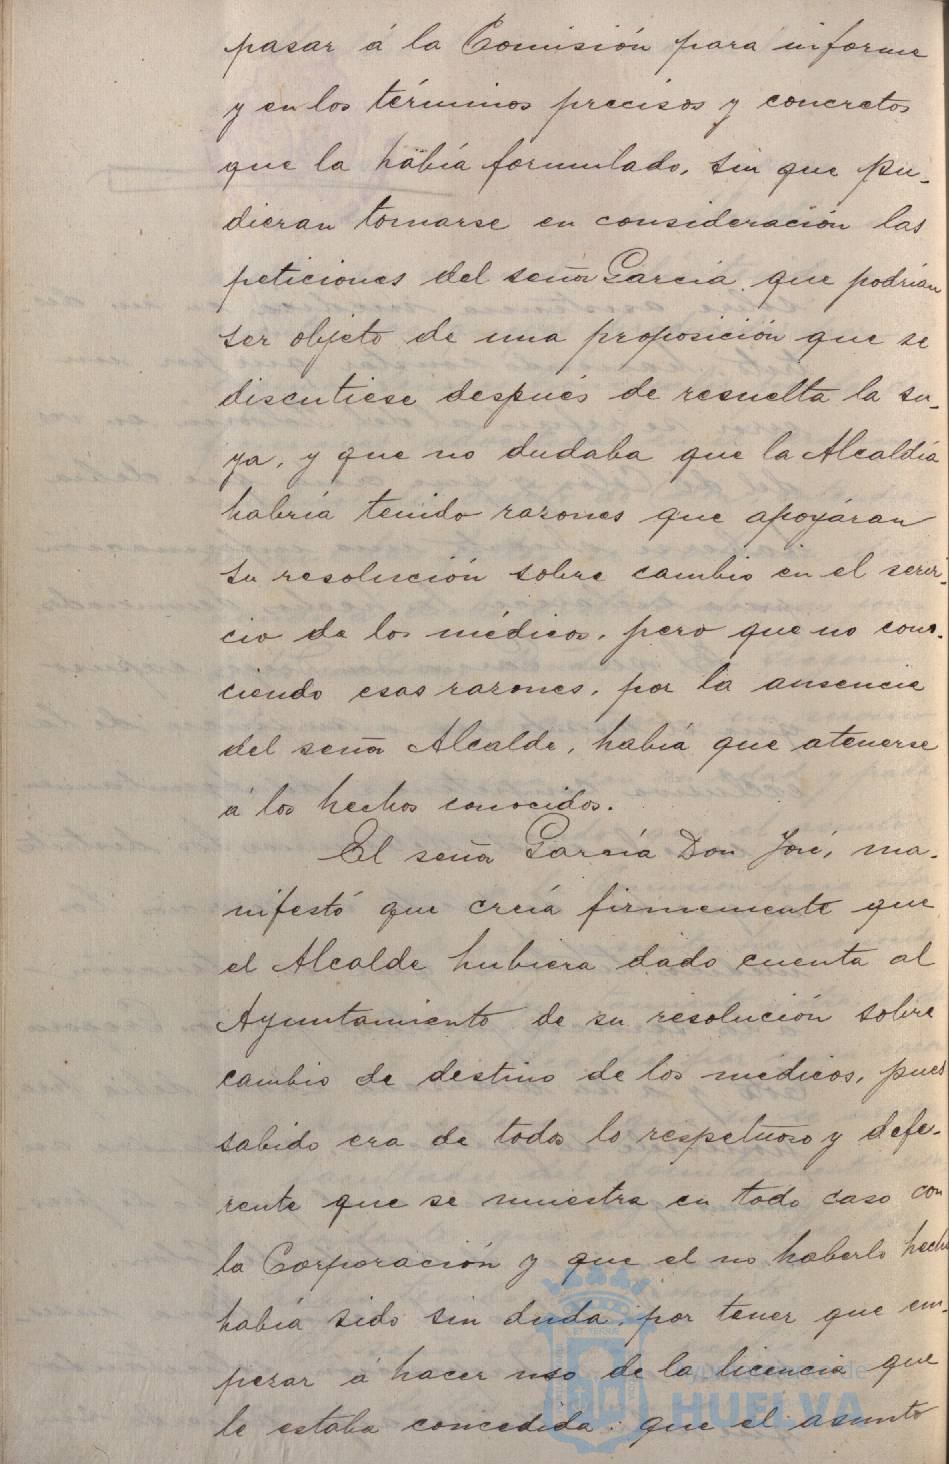 pasar á la Comisión para informe
y en los términos precisos y concretos
que la había formulado, sin que pu-
dieran tomarse en consideración las
peticiones del señor García que podrían
ser objeto de una proposición que se
discutiese después de resuelta la su-
ya, y que no dudaba que la Alcaldía
habría tenido razones que apoyáran
su resolución sobre cambio en el servi-
cio de los médicos, pero que no cono-
ciendo esas razones, por la ausencia
del señor Alcalde, había que atenerse
á los hechos conocidos.
El señor García Don José, ma-
nifestó que creía firmemente que
el Alcalde hubiera dado cuenta al
Ayuntamiento de su resolución sobre
cambio de destino de los médicos, pues
sabido era de todos lo respetuoso y defe-
rente que se muestra en todo caso con
la Corporación y que el no haberlo hecho
había sido sin duda, por tener que em-
pezar á hacer uso de la licencia que
le estaba concedida: que el asunto
Ayuntamiento de
HUELVA